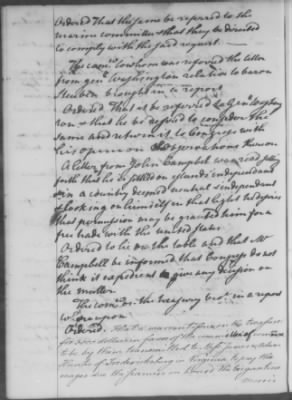 Ordered That the same be referred to the
marine committee & that they be directed
to comply with the said request.
The comee to whom was referred the letter
from genl Washington relative to baron
Steuben brought in a report
Ordered That it be referred to Genl Washing
ton & that he be desired to consider the
same and return it to Congress with
his opinion & observations thereon.
A letter from John Campbell was read setting
forth that he is settled on islands independant
in a country deemed neutral & independent
& looking on himself in that light he desires
that permission may be granted him for a
free trade with the united states
Ordered to lie on the table and that Mr
Campbell be informed that Congress do not
think it expedient to give any decision on
the matter.
The comee on the treasury brot in a report
Whereupon
Ordered. That a warrant issue on the treasurer
for dollars in favour of the committee of commerce
to be by them transmitted to Messrs James &
Hunter of Fredericksburg in Virginia to pay the
wages due the seamen on board the brigantine